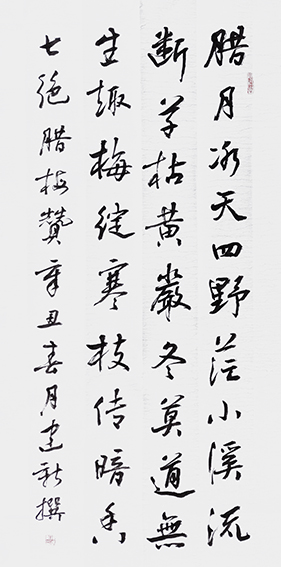 腊月冰天四野茫小溪流
断草枯黄嚴冬莫道無
生趣梅綻寒枝传暗香
七絕腊梅贊辛丑春月建新撰